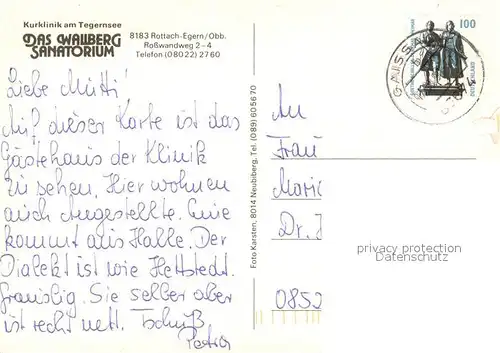 Kurklinik am Tegernsee
DAS WALLBERG
SANATORIUM
8183 Rottach-Egern/Obb.
Roßwandweg 2-4
Telefon (08022) 2760
Liebe Mutti!
Auf dieser Karte ist das
Gästehaus der Klinik
zu sehen. Hier wohnen
auch Angestellte. Eine
kommt aus Halle. Der
Dialekt ist wie Hettstedt.
Grauslig. Sie selber aber
ist recht nett. Tschüß
Petra
Foto Karsten, 8014 Neubiberg, Tel. (089) 605670
100
DEUTSCHLAND
GAISSA
An
Frau
Dr.
0852
privacy protection
Datenschutz